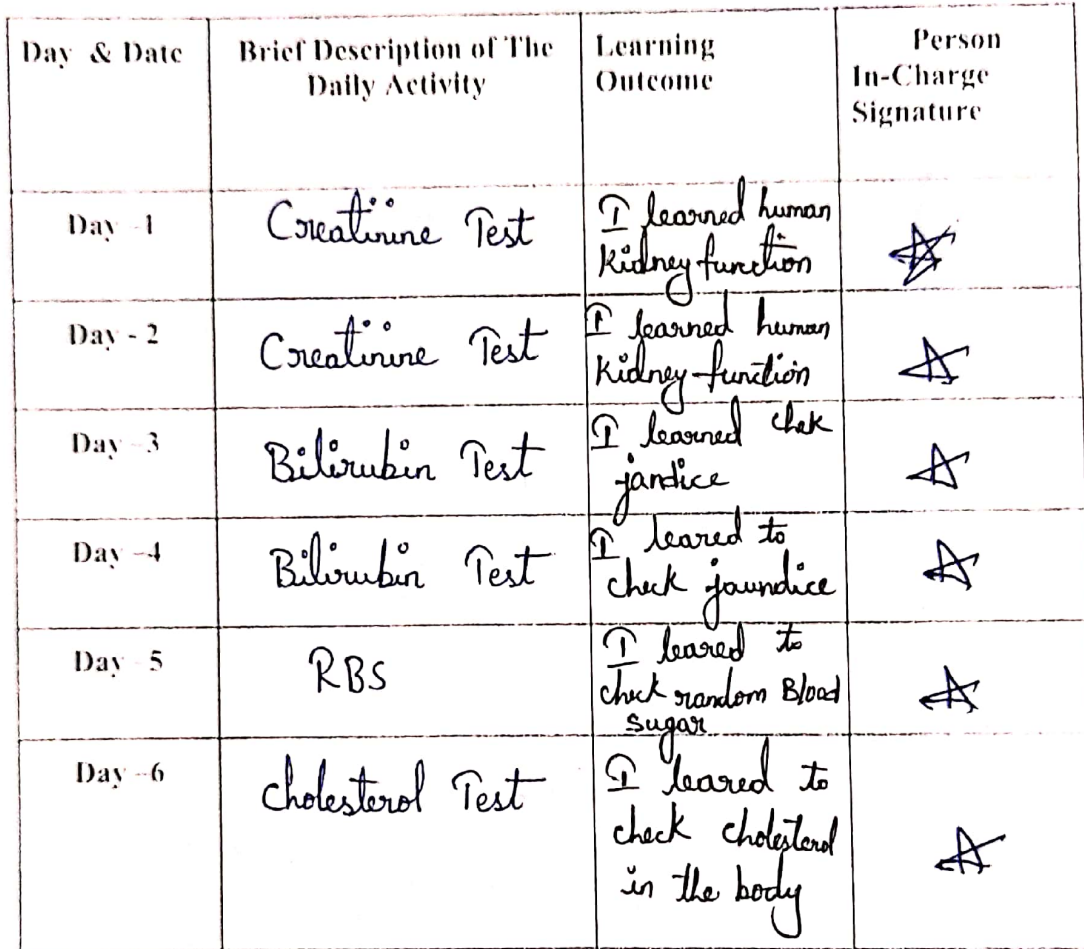 Day & Date
Brief Description of The
Daily Activity
Learning
Outcome
Person
In-Charge
Signature
Day -1
Creatinine Test
I learned human
kidney function
Day - 2
Creatinine Test
I learned human
kidney function
Day -3
Bilirubin Test
I learned chek
jandice
Day -4
Bilirubin Test
I leared to
check jaundice
Day -5
RBS
I leared to
check random Blood
sugar
Day -6
cholesterol Test
I leared to
check cholesterol
in the body